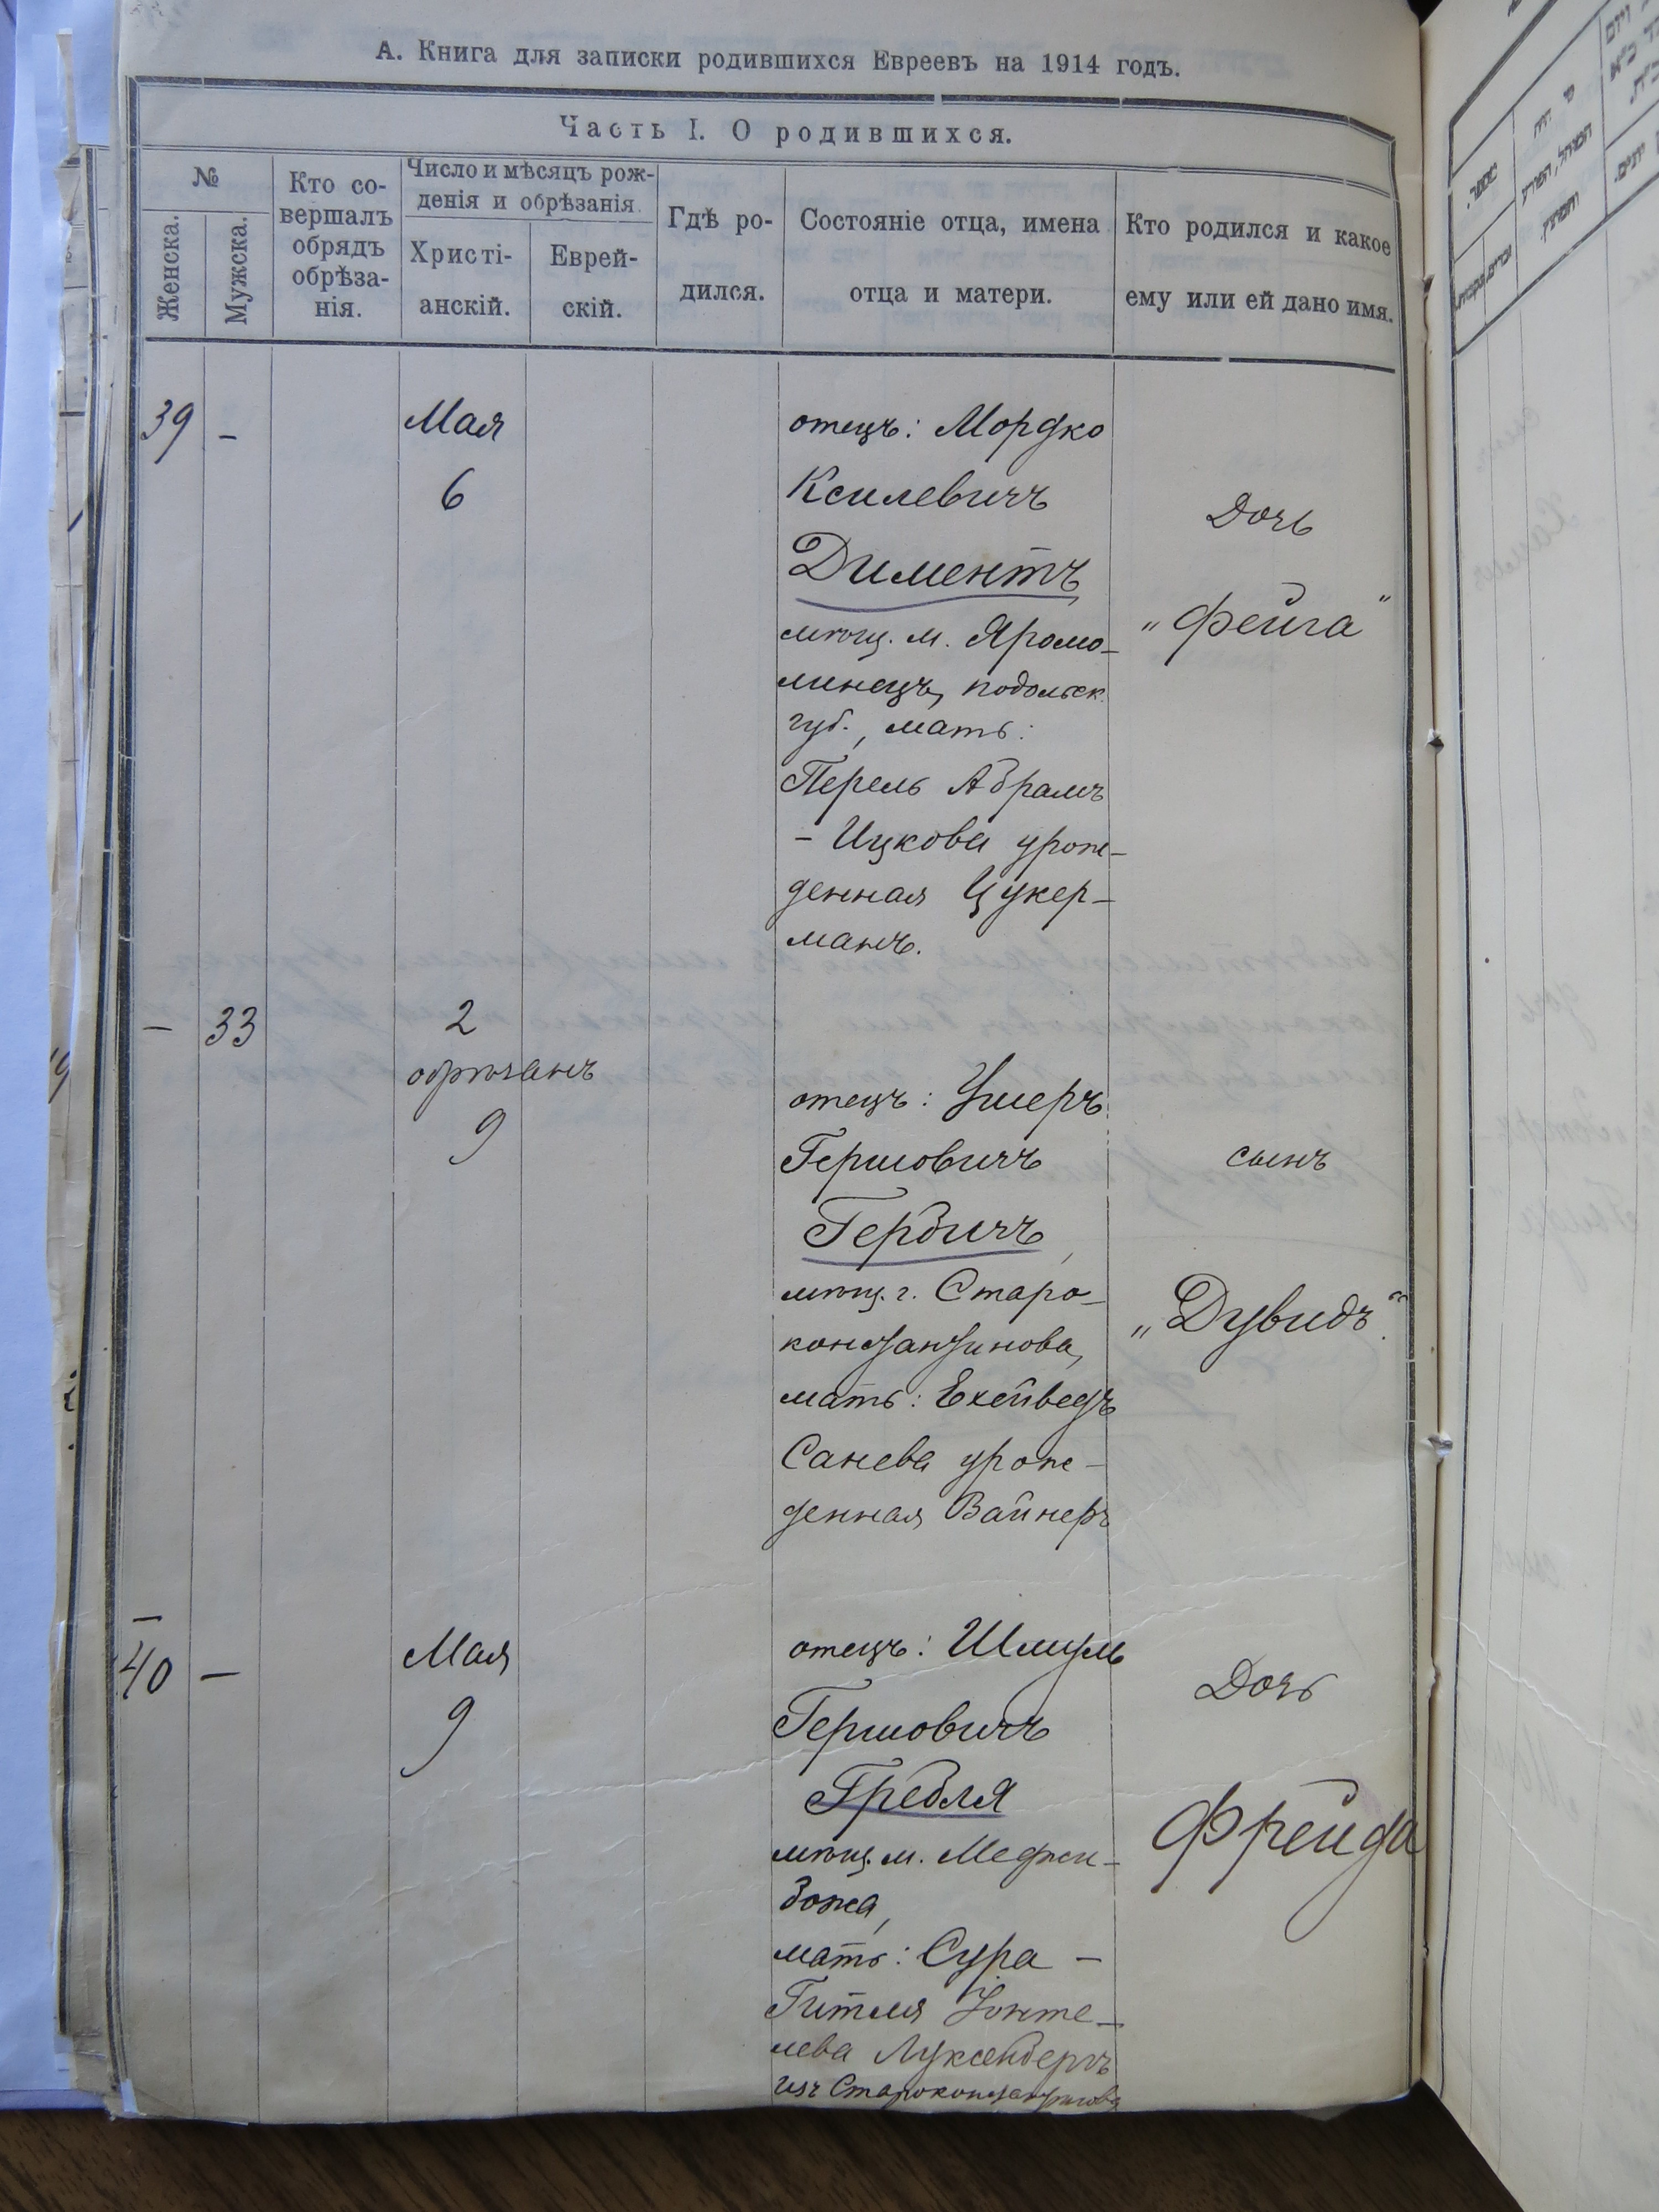 А. Книга для записки родившихся Евреевъ на 1914 годъ.
Часть I. О родившихся.
№
Женска.
Мужска.
Кто со-
вершалъ
обрядъ
обрѣза-
нія.
Число и мѣсяцъ рож-
денія и обрѣзанія.
Христі-
анскій.
Еврей-
скій.
Гдѣ ро-
дился.
Состояніе отца, имена
отца и матери.
Кто родился и какое
ему или ей дано имя.
39 –
Мая
6
отецъ: Мордко
Ксилевичъ
Диментъ,
мѣщ. м. Яромо–
линецъ, подольск.
губ., мать:
Перель Абрамъ
– Ицкова урож–
денная Цукер–
манъ.
Дочь
„Фейга“
– 33
2
обрѣзанъ
9
отецъ: Ушеръ
Гершовичъ
Гербичъ,
мѣщ. г. Старо–
константинова,
мать: Ехейведъ
Санева урож–
денная Вайнеръ
сынъ
„Дувидъ“.
40 –
Мая
9
отецъ: Шмуль
Гершовичъ
Гребля
мѣщ. м. Меджи–
божа,
мать: Сура –
Гитля
лева Луксенбергъ
изъ Староконстантинова
Дочь
Фрейда